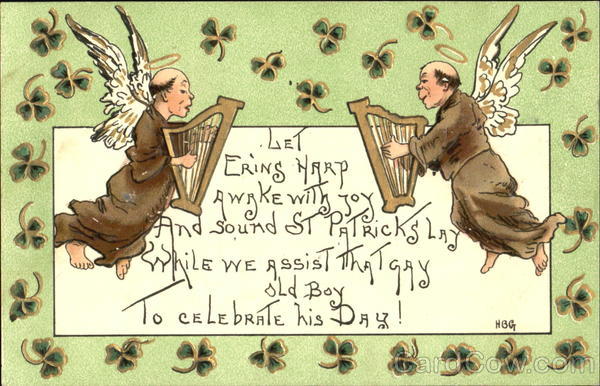 Let
Erin's Harp
awake with joy
And sound St Patrick's lay
While we assist that gay
old Boy
To celebrate his Day!
HBG
CardCow.com